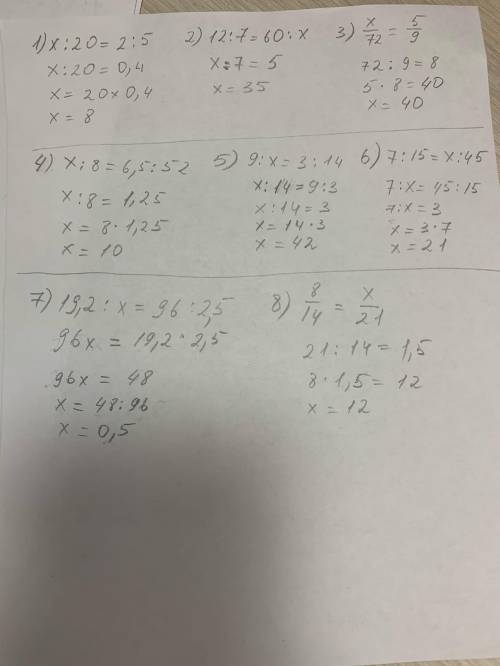 1) x : 20 = 2 : 5
x : 20 = 0,4
x = 20 × 0,4
x = 8
2) 12 : 7 = 60 : x
x : 7 = 5
x = 35
3) x/72 = 5/9
72 : 9 = 8
5 · 8 = 40
x = 40
4) x : 8 = 6,5 : 52
x : 8 = 1,25
x = 8 · 1,25
x = 10
5) 9 : x = 3 : 14
x : 14 = 9 : 3
x : 14 = 3
x = 14 · 3
x = 42
6) 7 : 15 = x : 45
7 : x = 45 : 15
7 : x = 3
x = 3 · 7
x = 21
7) 19,2 : x = 96 : 2,5
96x = 19,2 · 2,5
96x = 48
x = 48 : 96
x = 0,5
8) 8/14 = x/21
21 : 14 = 1,5
8 · 1,5 = 12
x = 12